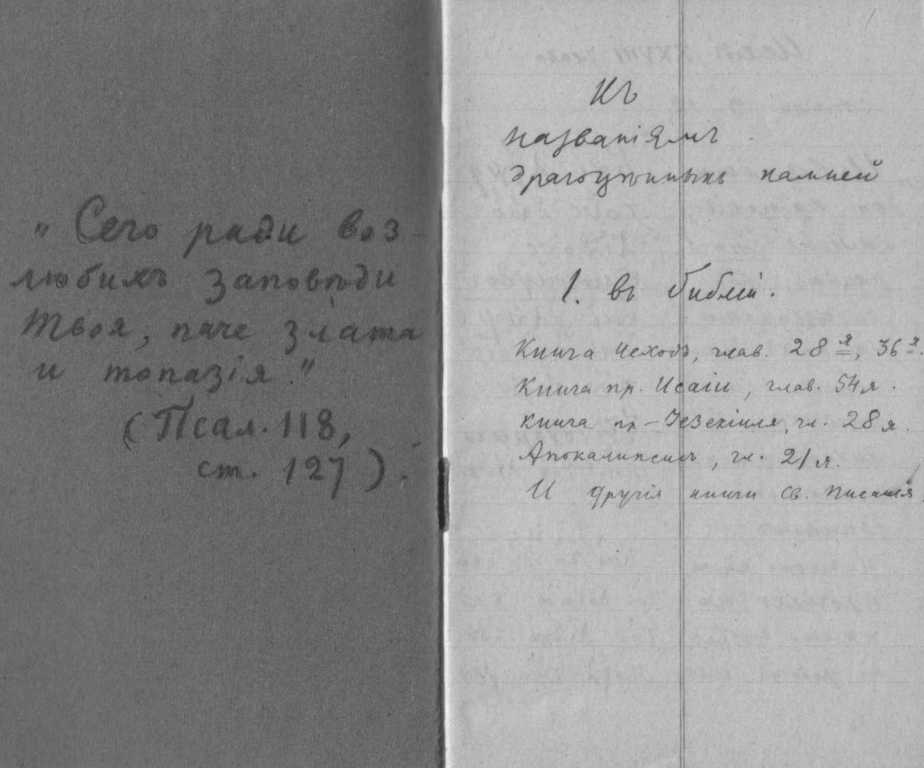 „Сего ради воз-
любихъ заповѣди
Твоя, паче злата
и топазія."
(Псал. 118,
ст. 127).
Къ
названіямъ
драгоцѣнныхъ камней
1. въ библіи.
Книга Исходъ, глав. 28я, 36я.
Книга пр. Исаіи, глав. 54я.
Книга пр-Іезекіиля, гл. 28я.
Апокалипсисъ, гл. 21я.
И другія книги св. писанія.